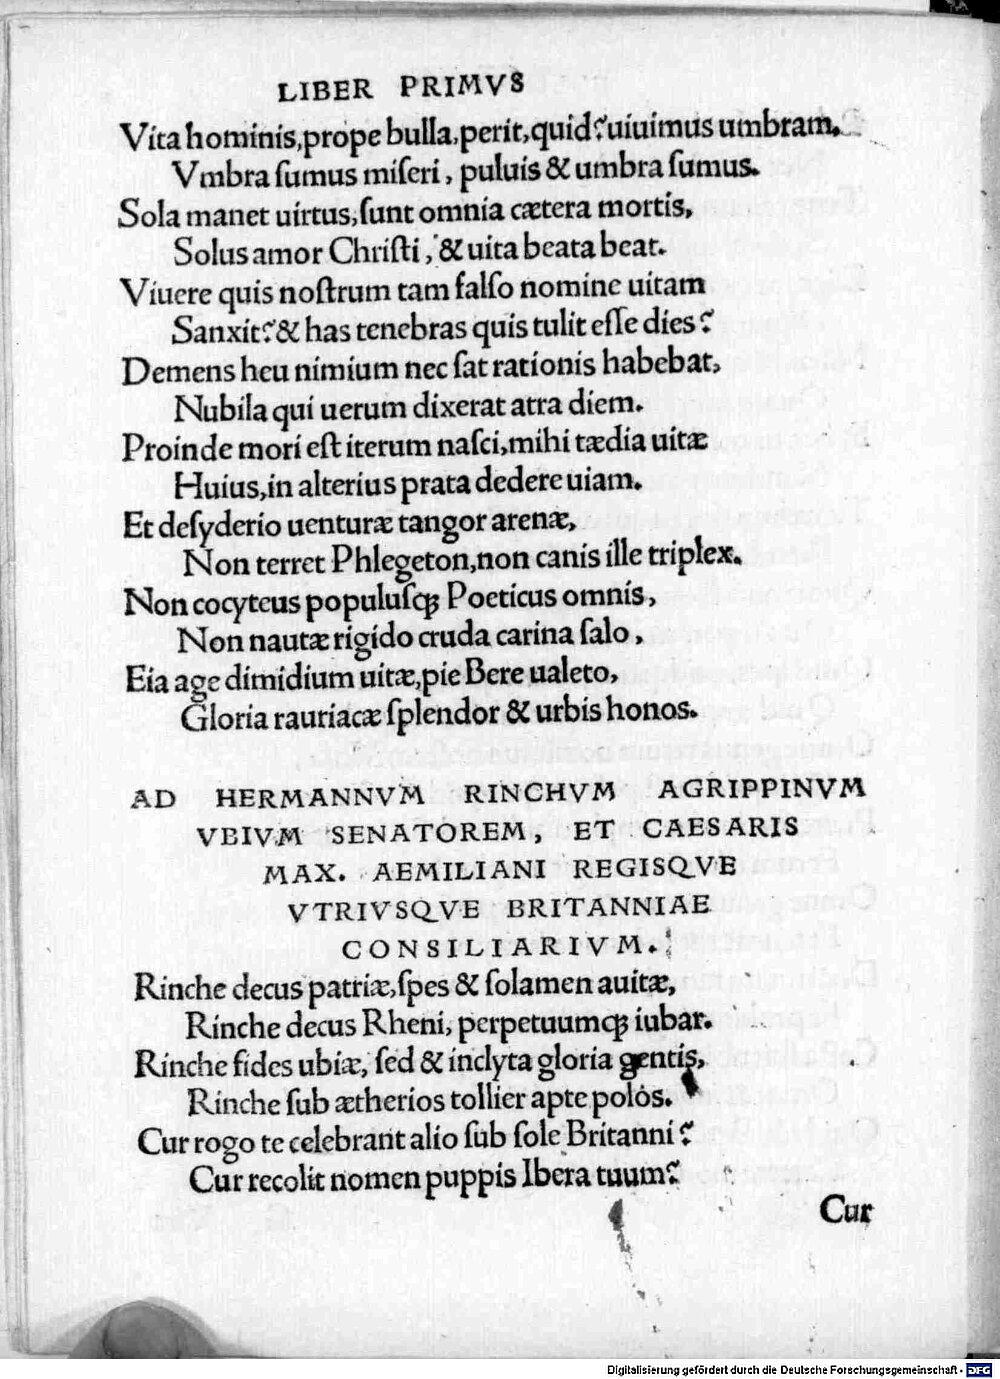 LIBER PRIMVS
Vita hominis,prope bulla,perit,quid?uiuimus umbram,
Vmbra ſumus miſeri, puluis & umbra ſumus.
Sola manet uirtus,ſunt omnia cætera mortis,
Solus amor Chriſti, & uita beata beat.
Viuere quis noſtrum tam falſo nomine uitam
Sanxit?& has tenebras quis tulit eſſe dies?
Demens heu nimium nec ſat rationis habebat,
Nubila qui uerum dixerat atra diem.
Proinde mori eſt iterum naſci,mihi tædia uitæ
Huius,in alterius prata dedere uiam.
Et deſyderio uenturæ tangor arenæ,
Non terret Phlegeton,non canis ille triplex.
Non cocyteus populuſqꝫ Poeticus omnis,
Non nautæ rigido cruda carina ſalo,
Eia age dimidium uitæ,pie Bere ualeto,
Gloria rauriacæ ſplendor & urbis honos.
AD HERMANNVM RINCHVM AGRIPPINVM
VBIVM SENATOREM, ET CAESARIS
MAX. AEMILIANI REGISQVE
VTRIVSQVE BRITANNIAE
CONSILIARIVM.
Rinche decus patriæ,ſpes & ſolamen auitæ,
Rinche decus Rheni, perpetuumqꝫ iubar.
Rinche fides ubiæ, ſed & inclyta gloria gentis,
Rinche ſub ætherios tollier apte polos.
Cur rogo te celebrant alio ſub ſole Britanni?
Cur recolit nomen puppis Ibera tuum?
Cur
Digitalisierung gefördert durch die Deutsche Forschungsgemeinschaft - DFG